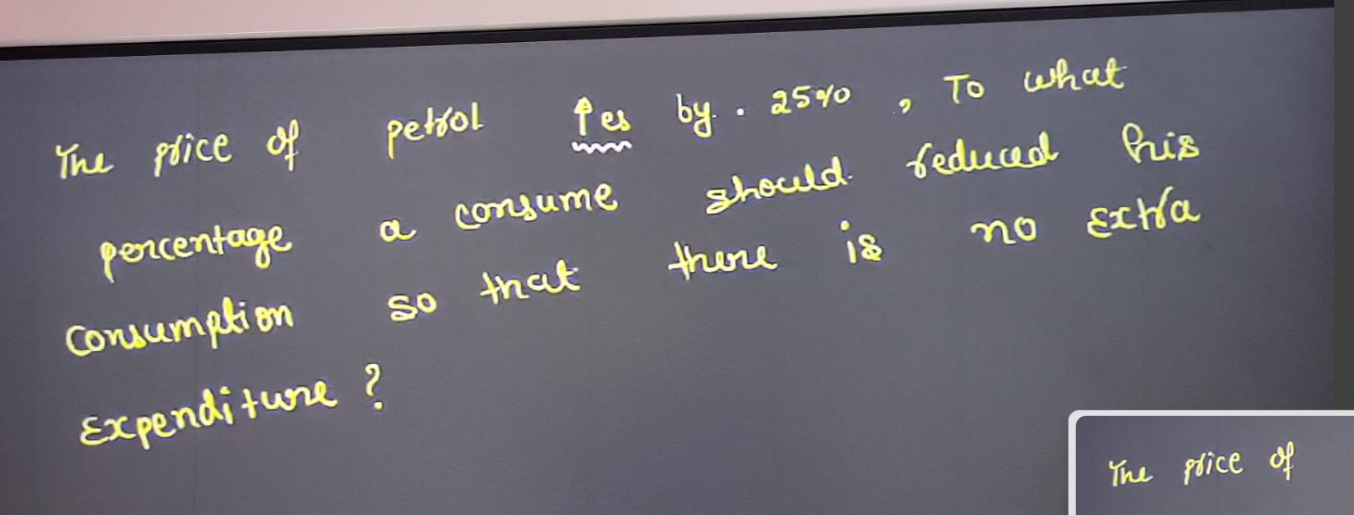 The price of petrol ↑es by . 25% , To what
percentage a consume should reduced his
consumption so that there is no Extra
Expenditure ?
The price of